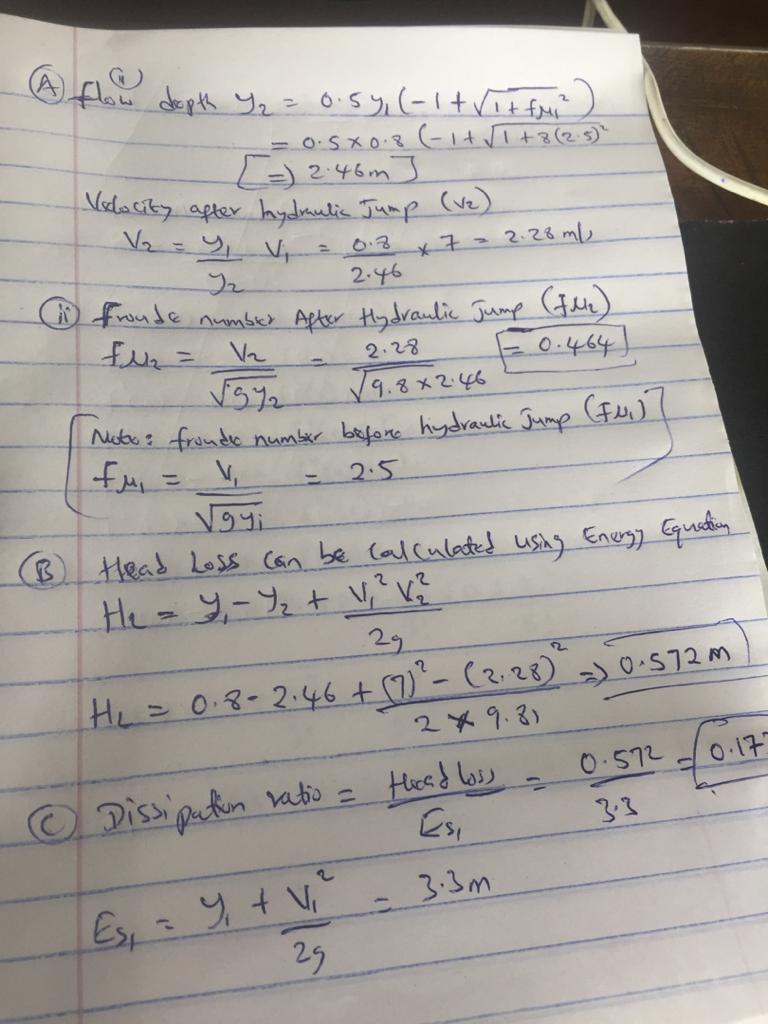 (i)
(A) flow depth y₂ = 0.5y₁(-1+√1+fμ₁²)
= 0.5×0.8 (-1+√1+8(2.5)²
[=) 2.46m]
Velocity after hydraulic Jump (V2)
V₂ = y₁/y₂ V₁ = 0.8/2.46 × 7 = 2.28 m/s
(ii) froude number After Hydraulic Jump (fμ₂)
fμ₂ = V₂/√gy₂ = 2.28/√9.8×2.46 = 0.464
Note: froude number before hydraulic Jump (fμ₁)
fμ₁ = V₁/√gyi = 2.5
(B) Head Loss can be Calculated using Energy Equation
HL = y₁ - y₂ + V₁² V₂²/2g
HL = 0.8 - 2.46 + (7)² - (2.28)²/2 × 9.81 => 0.572 m
(C) Dissipation ratio = Head loss/Es₁ = 0.572/3.3 = 0.17
Es₁ = y₁ + V₁²/2g = 3.3m